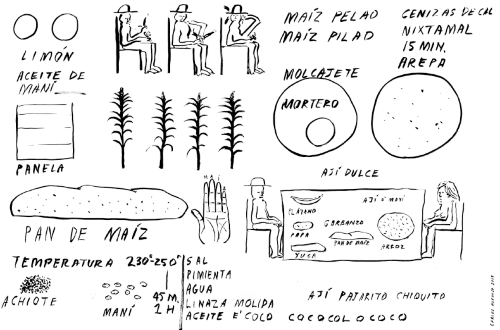 LIMÓN
ACEITE DE
MANÍ
PANELA
MAÍZ PELAO
MAÍZ PILAO
CENIZAS DE CAL
NIXTAMAL
15 MIN.
AREPA
MOLCAJETE
MORTERO
AJÍ DULCE
PAN DE MAÍZ
M A Í
PLÁTANO
PAPA
YUCA
GARBANZO
PAN DE MAÍZ
ARROZ
TEMPERATURA 230°250°
45 M.
1 H
ACHIOTE
MANÍ
SAL
PIMIENTA
AGUA
LINAZA MOLIDA
ACEITE E' COCO
COCOCOLOCOCO
AJÍ PAJARITO CHIQUITO